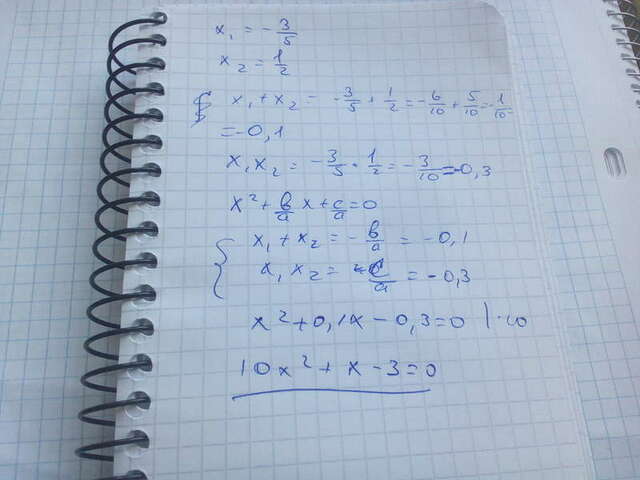 x₁ = -3/5
x₂ = 1/2
x₁ + x₂ = -3/5 + 1/2 = -6/10 + 5/10 = -1/10
= -0,1
x₁ x₂ = -3/5 · 1/2 = -3/10 = -0,3
x² + b/a x + c/a = 0
x₁ + x₂ = -b/a = -0,1
x₁ x₂ = c/a = -0,3
x² + 0,1x - 0,3 = 0 | · 10
10x² + x - 3 = 0